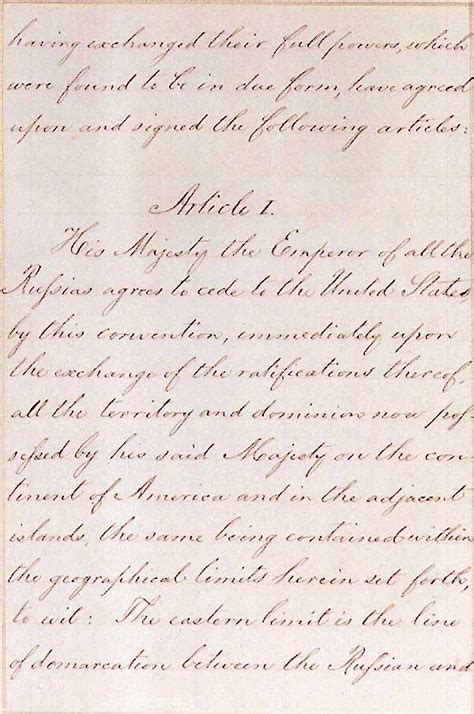 having exchanged their full powers, which
were found to be in due form, have agreed
upon and signed the following articles:
Article I.
His Majesty the Emperor of all the
Russias agrees to cede to the United States
by this convention, immediately upon
the exchange of the ratifications thereof,
all the territory and dominion now pos-
sessed by his said Majesty on the con-
tinent of America and in the adjacent
islands, the same being contained within
the geographical limits herein set forth,
to wit: The eastern limit is the line
of demarcation between the Russian and